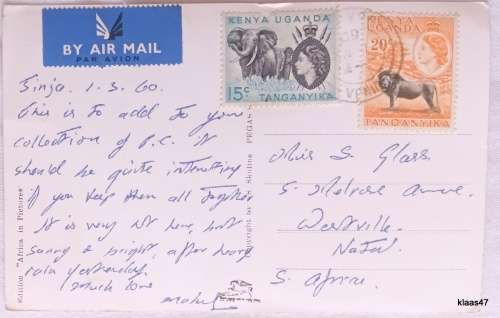 BY AIR MAIL
PAR AVION
KENYA UGANDA
15c
TANGANYIKA
KENYA
UGANDA
20c
TANGANYIKA
Jinja. 1.3.60.
This is to add to your
collection of P.C. It
should be quite interesting
if you keep them all together
It is very hot here, but
sunny & bright, after heavy
rain yesterday.
Much love
Miss S. Glass
5. Melrose Avenue.
Westville.
Natal.
S. Africa.
Edition "Africa in Pictures"
Copyright by S Skulina PEGAS
klaas47